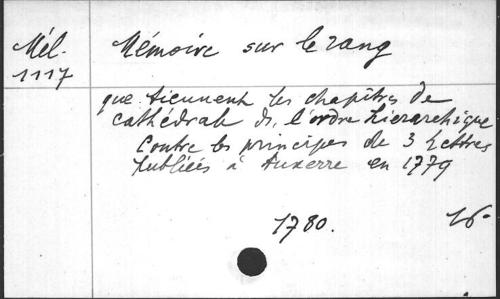 Mél.
1117
Mémoire sur le rang
que tiennent les chapîtres de
cathédrale ds. l'ordre hiérarchique
Contre les principes de 3 lettres
publiées à Auxerre en 1779
1780.
16°